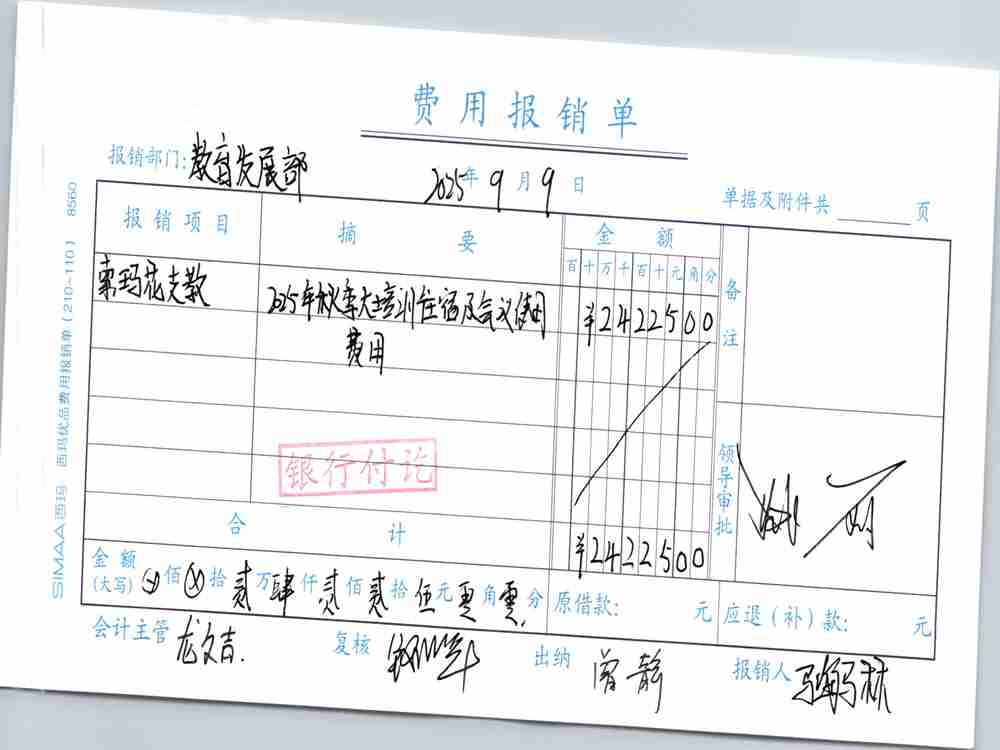 费用报销单
报销部门:教育发展部 2025年9月9日 单据及附件共 页
报销项目 摘要 金额 备注
百十万千百十元角分
索玛花支教 2025年秋季大培训住宿及会议使用 ¥2422500
费用
银行付讫
领导审批
合计 ¥2422500
金额(大写) 佰 拾贰万肆仟贰佰贰拾伍元零角零分 原借款: 元 应退(补)款: 元
会计主管 龙文吉. 复核 出纳 曾静 报销人
SIMAA西玛 西玛优品费用报销单(210-110) 8560